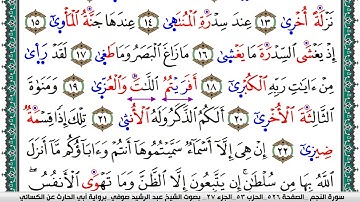 نَزْلَةً أُخْرَىٰ ١٣ عِندَ سِدْرَةِ الْمُنتَهَىٰ ١٤ عِندَهَا جَنَّةُ الْمَأْوَىٰ ١٥
إِذْ يَغْشَى السِّدْرَةَ مَا يَغْشَىٰ ١٦ مَا زَاغَ الْبَصَرُ وَمَا طَغَىٰ ١٧ لَقَدْ رَأَىٰ
مِنْ ءَايَٰتِ رَبِّهِ الْكُبْرَىٰ ١٨ أَفَرَيْتُمُ اللَّٰتَ وَالْعُزَّىٰ ١٩ وَمَنَوٰةَ
الثَّالِثَةَ الْأُخْرَىٰ ٢٠ أَلَكُمُ الذَّكَرُ وَلَهُ الْأُنثَىٰ ٢١ تِلْكَ إِذًا قِسْمَةٌ
ضِيزَىٰ ٢٢ إِنْ هِىَ إِلَّا أَسْمَاءٌ سَمَّيْتُمُوهَا أَنتُمْ وَءَابَاؤُكُم مَّا أَنزَلَ
اللَّهُ بِهَا مِن سُلْطَٰنٍ إِن يَتَّبِعُونَ إِلَّا الظَّنَّ وَمَا تَهْوَى الْأَنفُسُ
سورة النجم - الصفحة ٥٢٦ - الحزب ٥٣ - الجزء ٢٧ - بصوت الشيخ عبد الرشيد صوفي - برواية أبي الحارث عن الكسائي